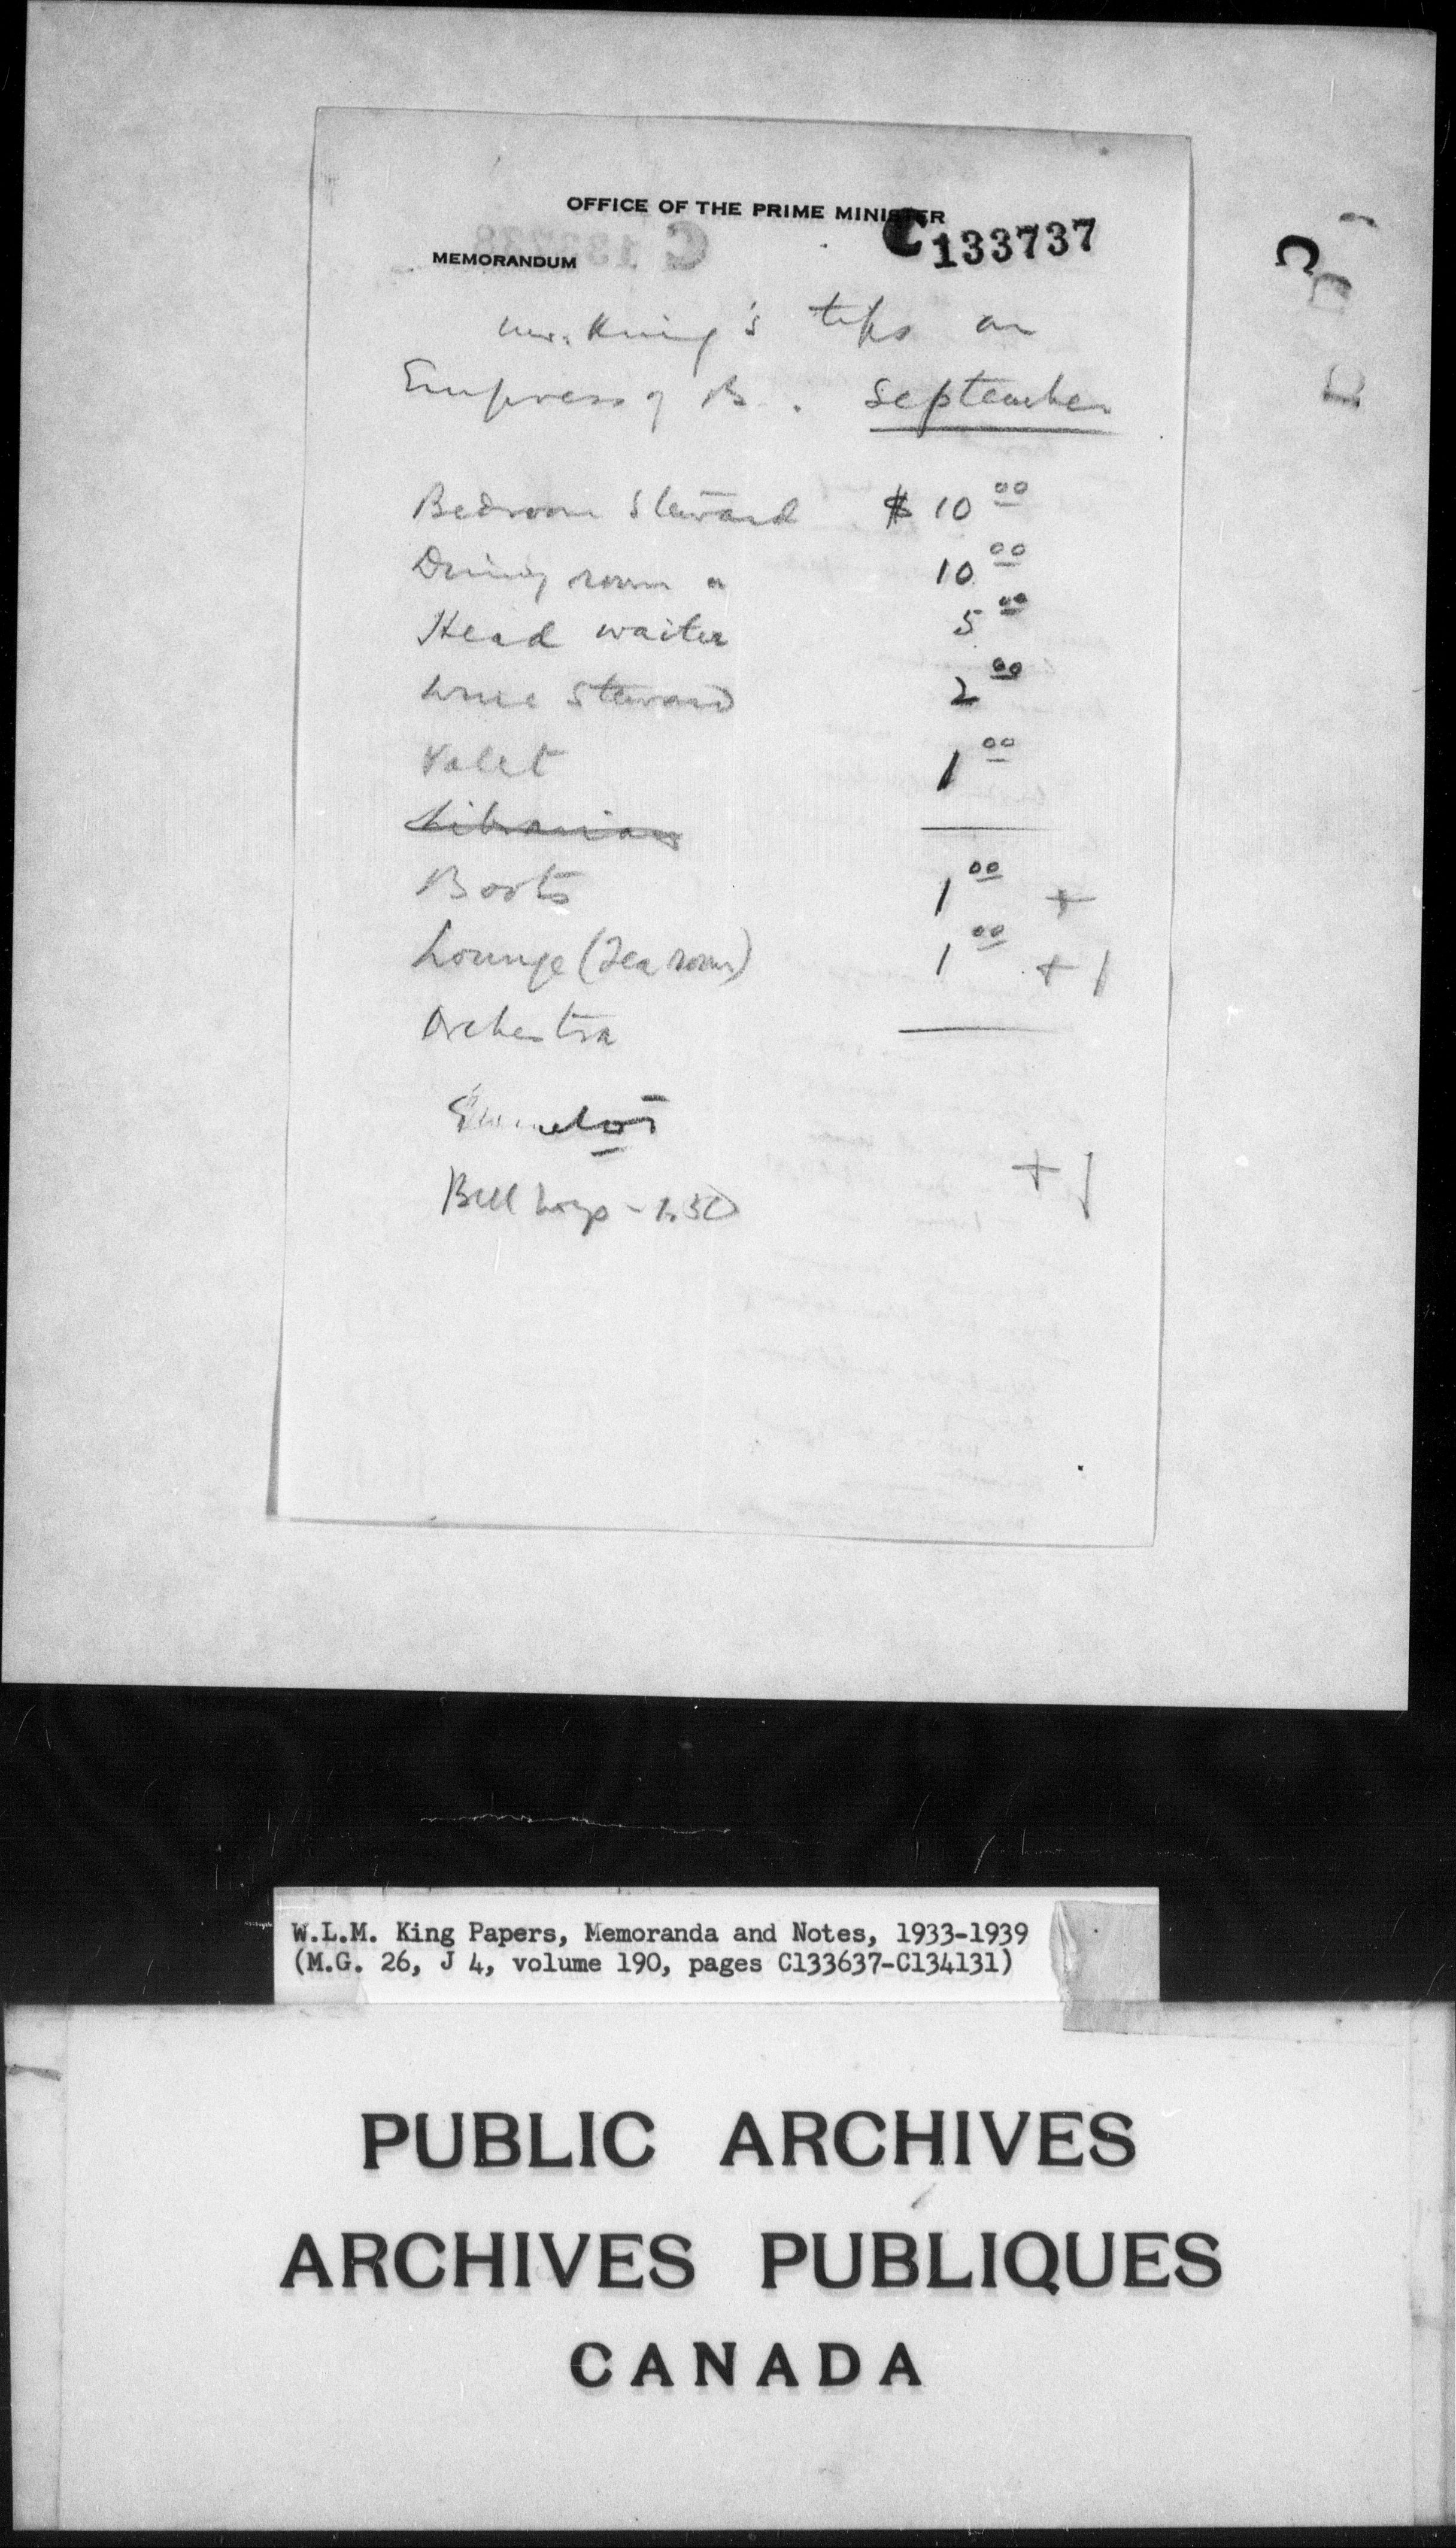 OFFICE OF THE PRIME MINISTER
C133737
MEMORANDUM
Mr. King's tips on
Empress of B. September
Bedroom Steward $ 10 00
Dining room " 10 00
Head waiter 5 00
Wine Steward 2 00
Valet 1 00
Librarian —
Boots 1 00 +
Lounge (Tea room) 1 00 + 1
Orchestra —
Elevator
Bell boys - 1.50 + 1
W.L.M. King Papers, Memoranda and Notes, 1933-1939
(M.G. 26, J 4, volume 190, pages C133637-C134131)
PUBLIC ARCHIVES
ARCHIVES PUBLIQUES
CANADA